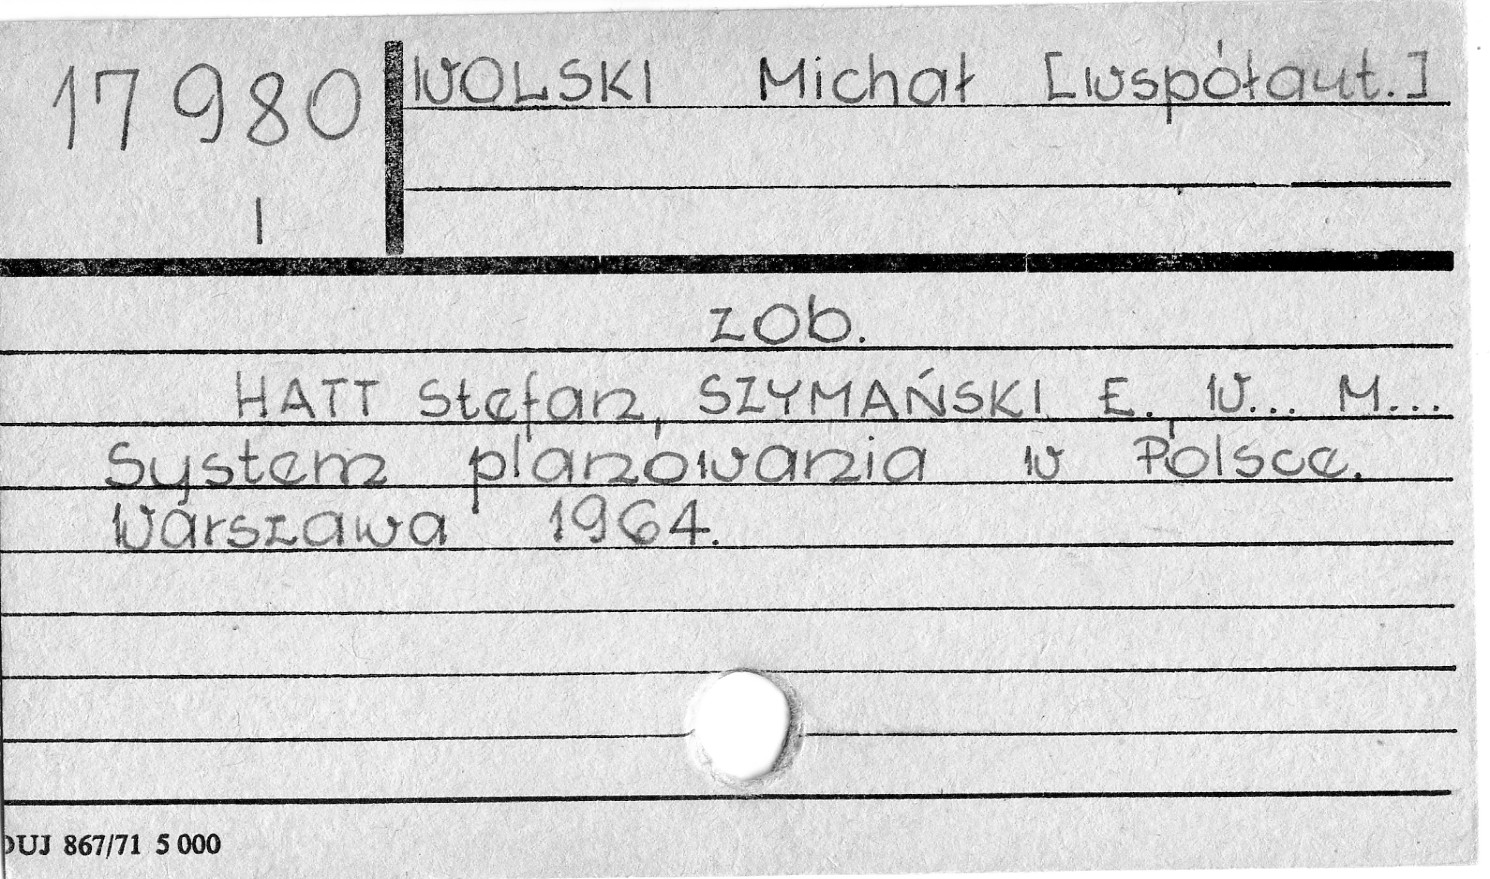 17 980
I
WOLSKI Michał [współaut.]
zob.
HATT Stefan, SZYMAŃSKI E. W... M...
System planowania w Polsce.
Warszawa 1964.
DUJ 867/71 5 000